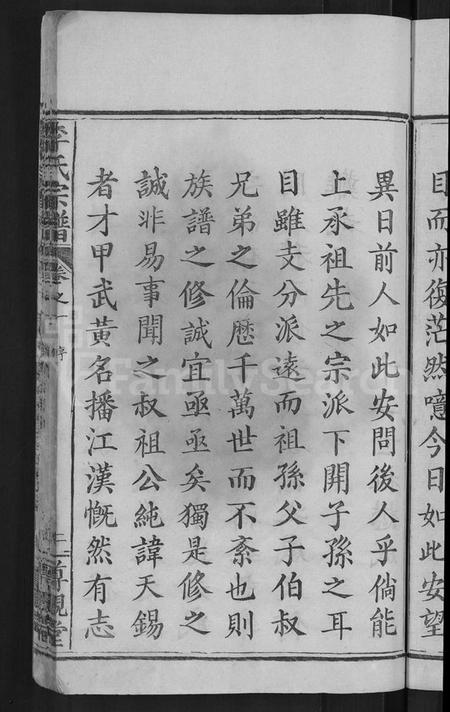 目而亦復茫然噫今日如此安望
異日前人如此安問後人乎倘能
上承祖先之宗派下開子孫之耳
目雖支分派遠而祖孫父子伯叔
兄弟之倫歷千萬世而不紊也則
族譜之修誠宜亟亟矣獨是修之
誠非易事聞之叔祖公純諱天錫
者才甲武黃名播江漢慨然有志
李氏宗譜
卷之一
序
尊親堂
FamilySearch